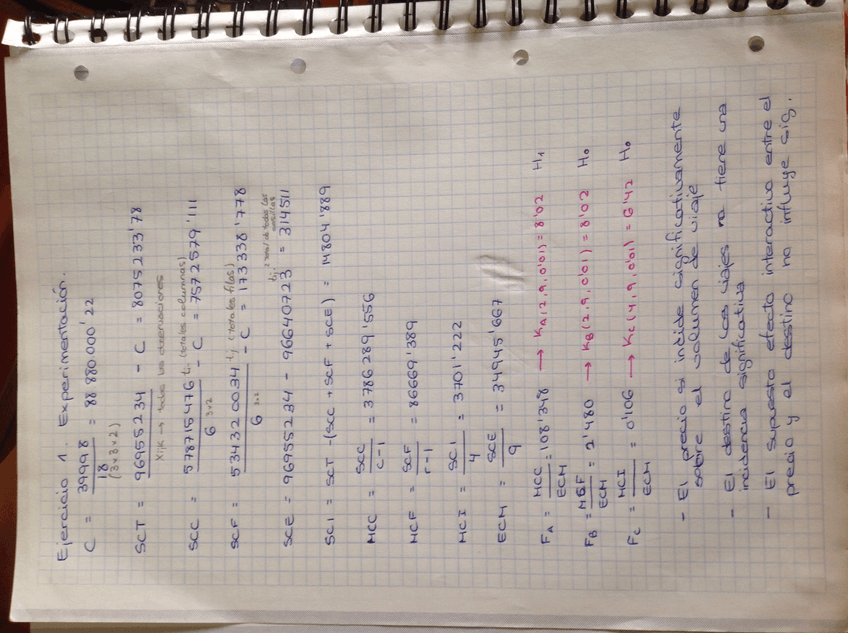 Ejercicio 1. Experimentación.
C = 39998 / 18 = 88 880.000'22
(3x3x2)
SCT = 96955234 - C = 8075233'78
Xijk → todas las observaciones
SCC = 578715476 / 6 - C = 7572579'111
ti. (totales columnas)
3x2
SCF = 534320034 / 6 - C = 173338'778
tj (totales filas)
3x2
SCE = 96955234 - 96640723 = 314511
tij total de todas las casillas
SCI = SCT - (SCC + SCF + SCE) = 14804'889
MCC = SCC / c-1 = 3786289'556
MCF = SCF / r-1 = 86669'389
MCI = SCI / 4 = 3701'222
ECM = SCE / 9 = 34945'667
FA = MCC / ECM = 108'348 → KA(2,9,0'01) = 8'02 H1
FB = MCF / ECM = 2'480 → KB(2,9,0'01) = 8'02 H0
FC = MCI / ECM = 0'106 → KC(4,9,0'01) = 6'42 H0
- El precio si incide significativamente
sobre el volumen de viaje
- El destino de los viajes no tiene una
incidencia significativa
- El supuesto efecto interactivo entre el
precio y el destino no influye sig.